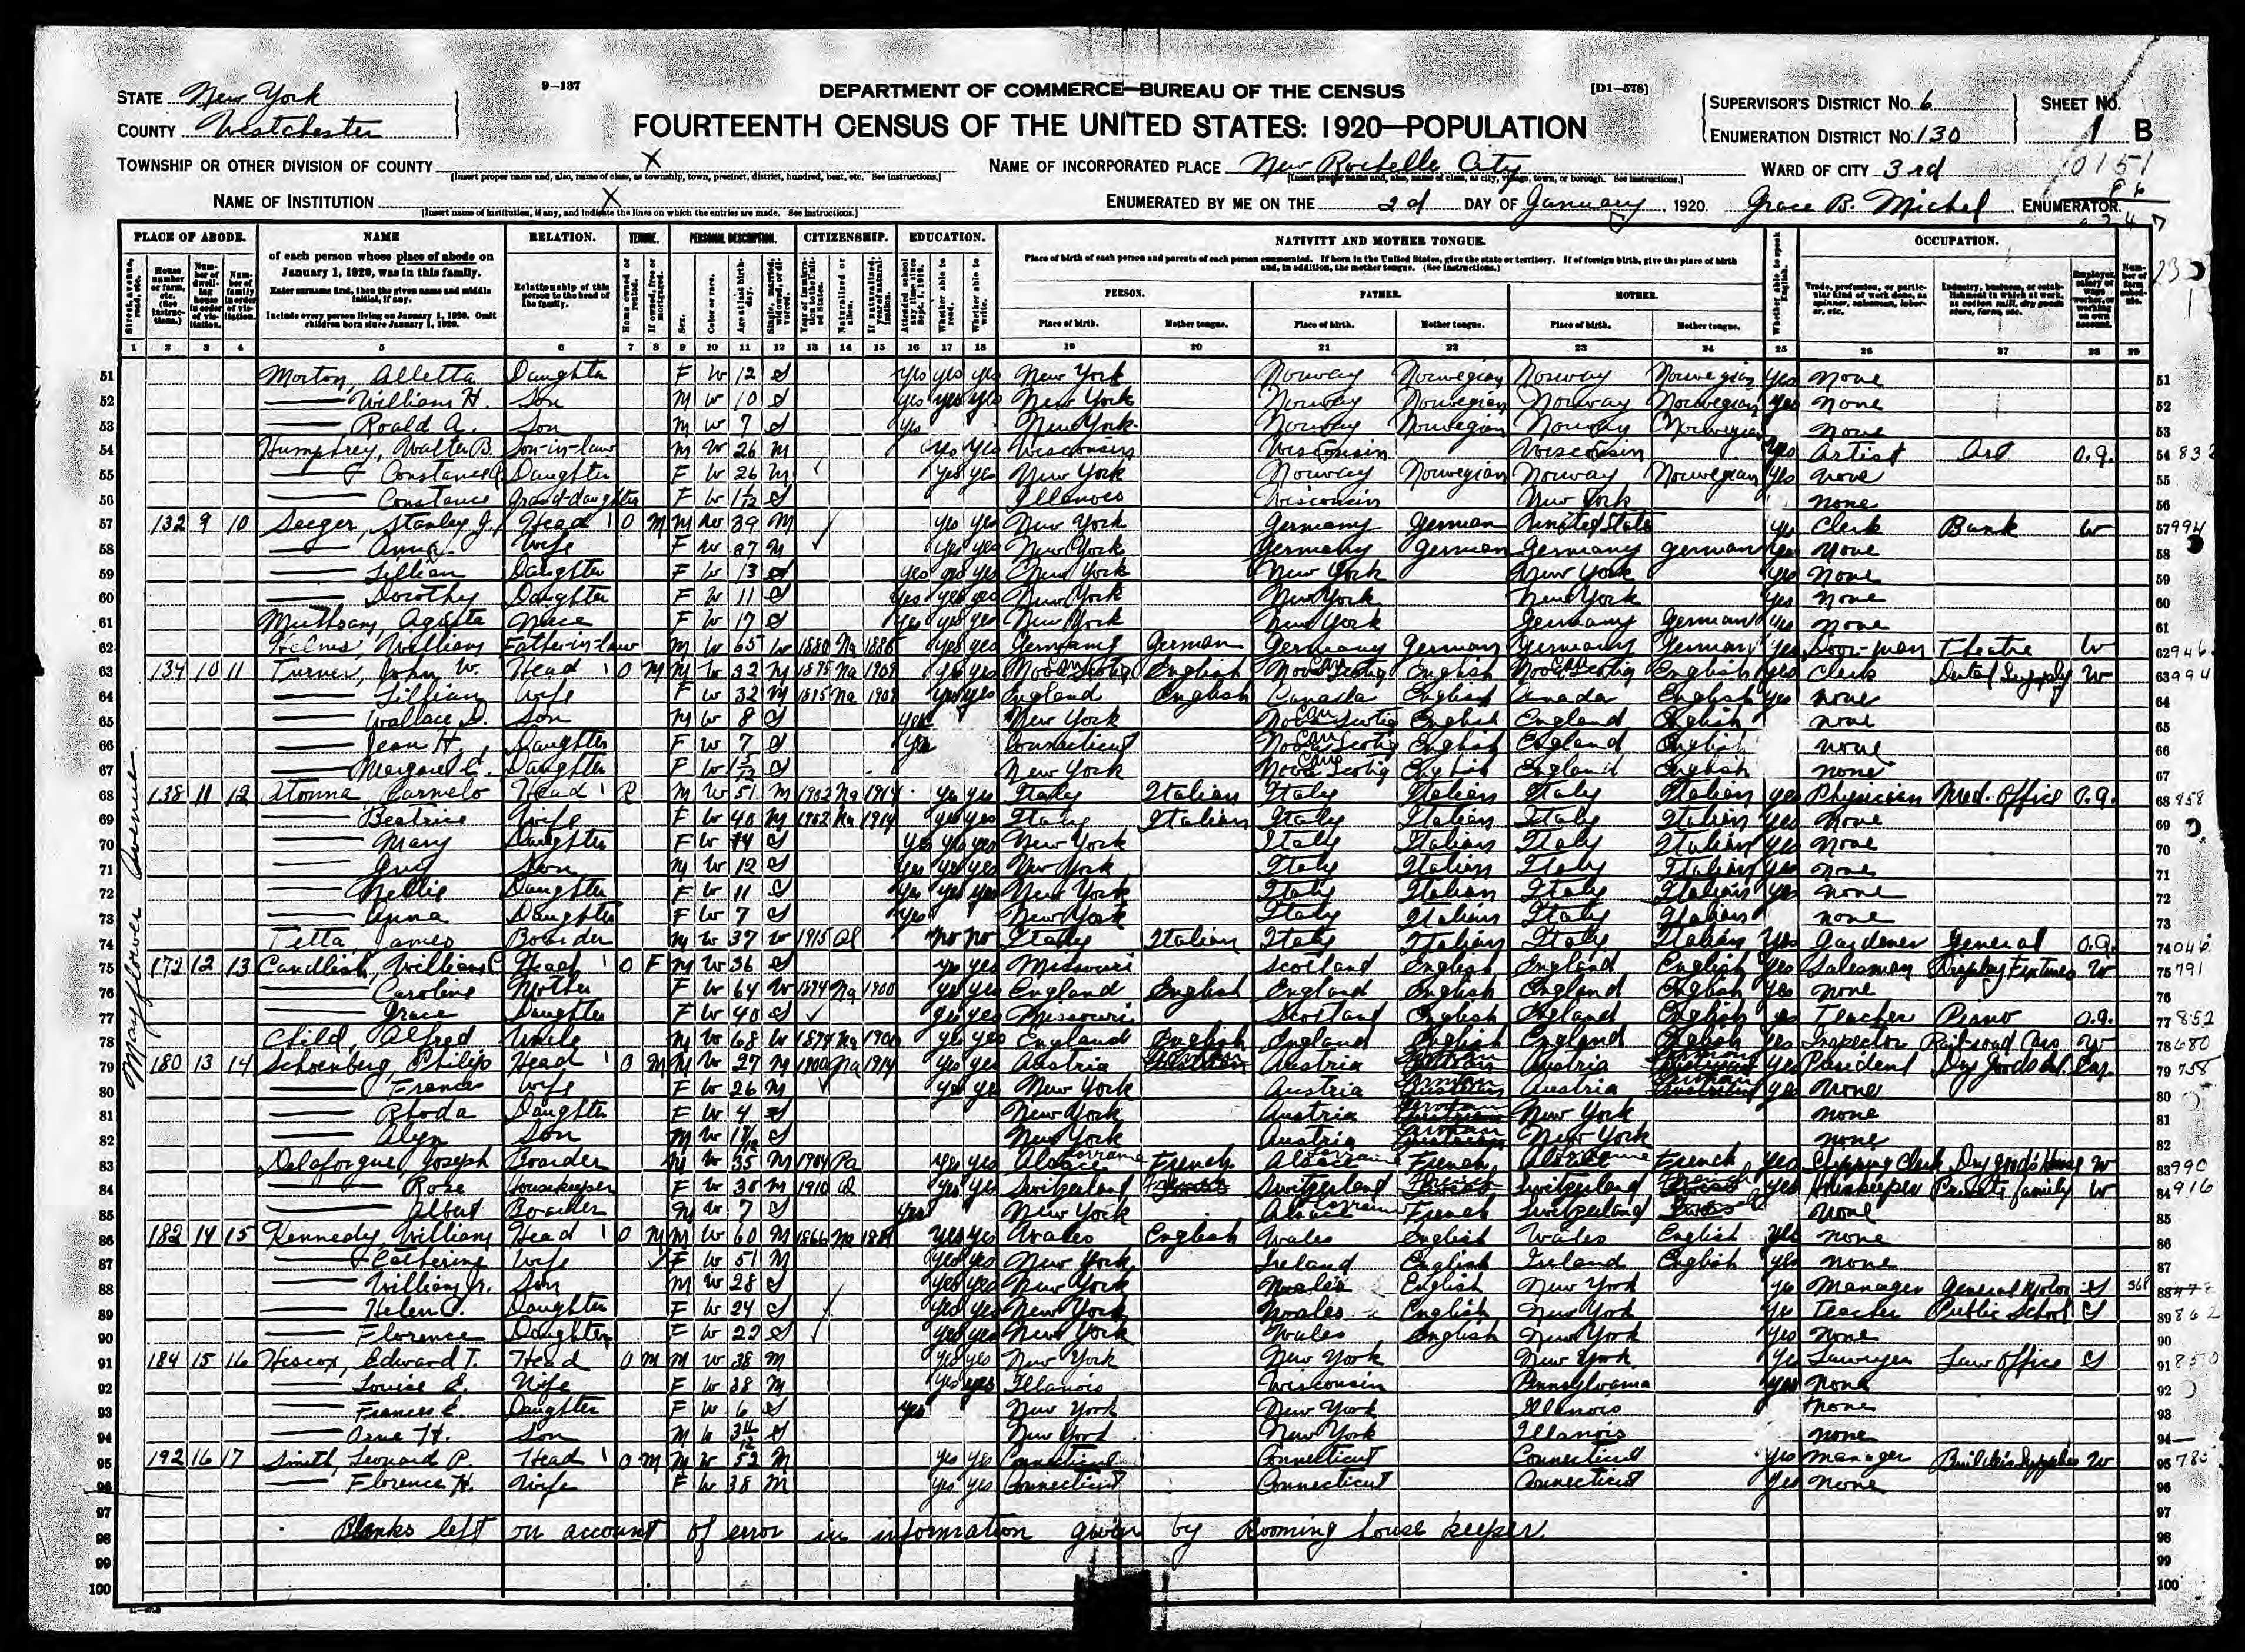 9—137
DEPARTMENT OF COMMERCE—BUREAU OF THE CENSUS
[D1-578]
STATE New York
COUNTY Westchester
FOURTEENTH CENSUS OF THE UNITED STATES: 1920—POPULATION
SUPERVISOR'S DISTRICT NO. 6
ENUMERATION DISTRICT NO. 130
SHEET NO. 1 B
TOWNSHIP OR OTHER DIVISION OF COUNTY X
[Insert proper name and, also, name of class, as township, town, precinct, district, hundred, beat, etc. See instructions.]
NAME OF INCORPORATED PLACE New Rochelle City
[Insert proper name and, also, name of class, as city, village, town, or borough. See instructions.]
WARD OF CITY 3rd
10151
NAME OF INSTITUTION X
[Insert name of institution, if any, and indicate the lines on which the entries are made. See instructions.]
ENUMERATED BY ME ON THE 2d DAY OF January, 1920. Grace B. Michel ENUMERATOR.
PLACE OF ABODE. NAME RELATION. TENURE. PERSONAL DESCRIPTION. CITIZENSHIP. EDUCATION. NATIVITY AND MOTHER TONGUE. OCCUPATION.
of each person whose place of abode on January 1, 1920, was in this family.
Enter surname first, then the given name and middle initial, if any.
Include every person living on January 1, 1920. Omit children born since January 1, 1920.
Relationship of this person to the head of the family.
Place of birth of each person and parents of each person enumerated. If born in the United States, give the state or territory. If of foreign birth, give the place of birth and, in addition, the mother tongue. (See instructions.)
PERSON. FATHER. MOTHER.
Place of birth. Mother tongue. Place of birth. Mother tongue. Place of birth. Mother tongue.
1 2 3 4 5 6 7 8 9 10 11 12 13 14 15 16 17 18 19 20 21 22 23 24 25 26 27 28 29
Mayflower Avenue
51 Morton, Alletta Daughter F W 12 S yes yes yes New York Norway Norwegian Norway Norwegian yes none 51
52 William H. Son M W 10 S yes yes yes New York Norway Norwegian Norway Norwegian yes none 52
53 Roald A. Son M W 7 S yes New York Norway Norwegian Norway Norwegian none 53
54 Humphrey, Walter B. Son-in-law M W 26 M yes yes Wisconsin Wisconsin Wisconsin yes Artist Art O.A. 54 832
55 Constance Daughter F W 26 M yes yes New York Norway Norwegian Norway Norwegian yes none 55
56 Constance Grand-daughter F W 1/12 S Illinois Wisconsin New York none 56
57 132 9 10 Seeger, Stanley J. Head O M M W 39 M yes yes New York Germany German United States yes Clerk Bank W 57 994
58 Anna Wife F W 37 M yes yes New York Germany German Germany German yes none 58
59 Lillian Daughter F W 13 S yes yes yes New York New York New York yes none 59
60 Dorothy Daughter F W 11 S yes yes yes New York New York New York yes none 60
61 Niece F W 17 S yes yes yes New York New York Germany German yes none 61
62 Helms William Father-in-law M W 65 W 1880 Na 1886 yes yes Germany German Germany German Germany German yes Door-man Theatre W 62 946
63 134 10 11 Turner, John W. Head O M M W 32 M 1895 Na 1909 yes yes Nova Scotia Can English Nova Scotia Can English Nova Scotia Can English yes Clerk Dental Supply W 63 994
64 Lillian Wife F W 32 M 1895 Na 1909 yes yes England English Canada English Canada English yes none 64
65 Wallace D. Son M W 8 S yes New York Nova Scotia Can English England English none 65
66 Jean H. Daughter F W 7 S yes Connecticut Nova Scotia Can English England English none 66
67 Margaret E. Daughter F W New York Nova Scotia Can English England English none 67
68 138 11 12 Atonna Carmelo Head R M W 51 M 1902 Na 1914 yes yes Italy Italian Italy Italian Italy Italian yes Physician Med. Office O.A. 68 858
69 Beatrice Wife F W 40 M 1902 Na 1914 yes yes Italy Italian Italy Italian Italy Italian yes none 69
70 Mary Daughter F W 14 S yes yes yes New York Italy Italian Italy Italian yes none 70
71 Guy Son M W 12 S yes yes yes New York Italy Italian Italy Italian yes none 71
72 Nellie Daughter F W 11 S yes yes yes New York Italy Italian Italy Italian yes none 72
73 Anna Daughter F W 7 S yes New York Italy Italian Italy Italian none 73
74 Tetta, James Boarder M W 37 W 1915 Al no no Italy Italian Italy Italian Italy Italian yes Gardener General O.A. 74
75 172 12 13 Candlish, William C. Head O F M W 36 S yes yes Missouri Scotland English England English yes Salesman Display Fixtures W 75 791
76 Caroline Mother F W 64 W 1874 Na 1900 yes yes England English England English England English yes none 76
77 Grace Daughter F W 40 S yes yes Missouri Scotland English England English yes Teacher Piano O.A. 77 852
78 Child, Alfred Uncle M W 68 W 1874 Na 1900 yes yes England English England English England English yes Inspector Rail-road Cars W 78 680
79 180 13 14 Schoenberg, Philip Head O M M W 27 M 1900 Na 1914 yes yes Austria German Austria German Austria German yes President Dry Goods Em. 79 758
80 Frances Wife F W 26 M yes yes New York Austria German Austria German yes none 80
81 Rhoda Daughter F W 4 S New York Austria German New York none 81
82 Alyn Son M W S New York Austria German New York none 82
83 Delaforgue, Joseph Boarder M W 35 M 1904 Pa yes yes Alsace Lorraine French Alsace Lorraine French Alsace Lorraine French yes Shipping Clerk Dry goods House W 83 990
84 Rose Housekeeper F W 30 M 1910 Al yes yes Switzerland French Switzerland French Switzerland French yes Housekeeper Private family W 84 916
85 Albert Boarder M W 7 S yes New York Alsace Lorraine French Switzerland none 85
86 182 14 15 Kennedy, William Head O M M W 60 M 1866 Na yes yes Wales English Wales English Wales English yes none 86
87 Catherine Wife F W 51 M yes yes New York Ireland English Ireland English yes none 87
88 William Jr. Son M W 28 S yes yes New York Wales English New York yes Manager General Motor 88
89 Helen C. Daughter F W 24 S yes yes New York Wales English New York yes Teacher Public School 89 862
90 Florence Daughter F W 22 S yes yes New York Wales English New York yes none 90
91 184 15 16 Hiscox, Edward T. Head O M M W 38 M yes yes New York New York New York yes Lawyer Law Office 91 850
92 Louise E. Wife F W 38 M yes yes Illinois Wisconsin Pennsylvania yes none 92
93 Frances E. Daughter F W 6 S yes New York New York Illinois none 93
94 Arne H. Son M W 3 11/12 S New York New York Illinois none 94
95 192 16 17 Smith, Leonard P. Head O M M W 52 M yes yes Connecticut Connecticut Connecticut yes Manager Builders Supplies W 95
96 Florence H. Wife F W 38 M yes yes Connecticut Connecticut Connecticut yes none 96
97 97
98 Blanks left on account of error in information given by Rooming house keeper. 98
99 99
100 100